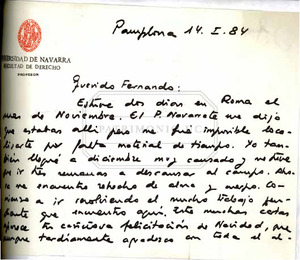 Pamplona 14. I. 84
UNIVERSIDAD DE NAVARRA
FACULTAD DE DERECHO
PROFESOR
Querido Fernando:
Estuve dos días en Roma el
mes de Noviembre. El P. Navarrete me dijo
que estabas allí pero me fue imposible loca-
lizarte por falta material de tiempo. Yo tam-
bién llegué a diciembre muy cansado y
por ir tres semanas a descansar al campo. Aho-
ra me encuentro rehecho de alma y cuerpo. Co-
mienzo a ir resolviendo el mucho trabajo pen-
diente que encuentro aquí. Entre muchas cartas
tu cariñosa felicitación de Navidad, que
aunque tardíamente agradezco con toda el al-